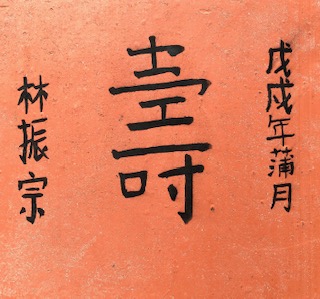 戊戌年蒲月
壽
林振宗